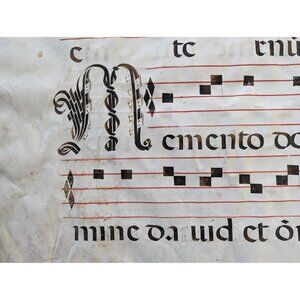 c te ernū
Memento do
mine da uid et ōr